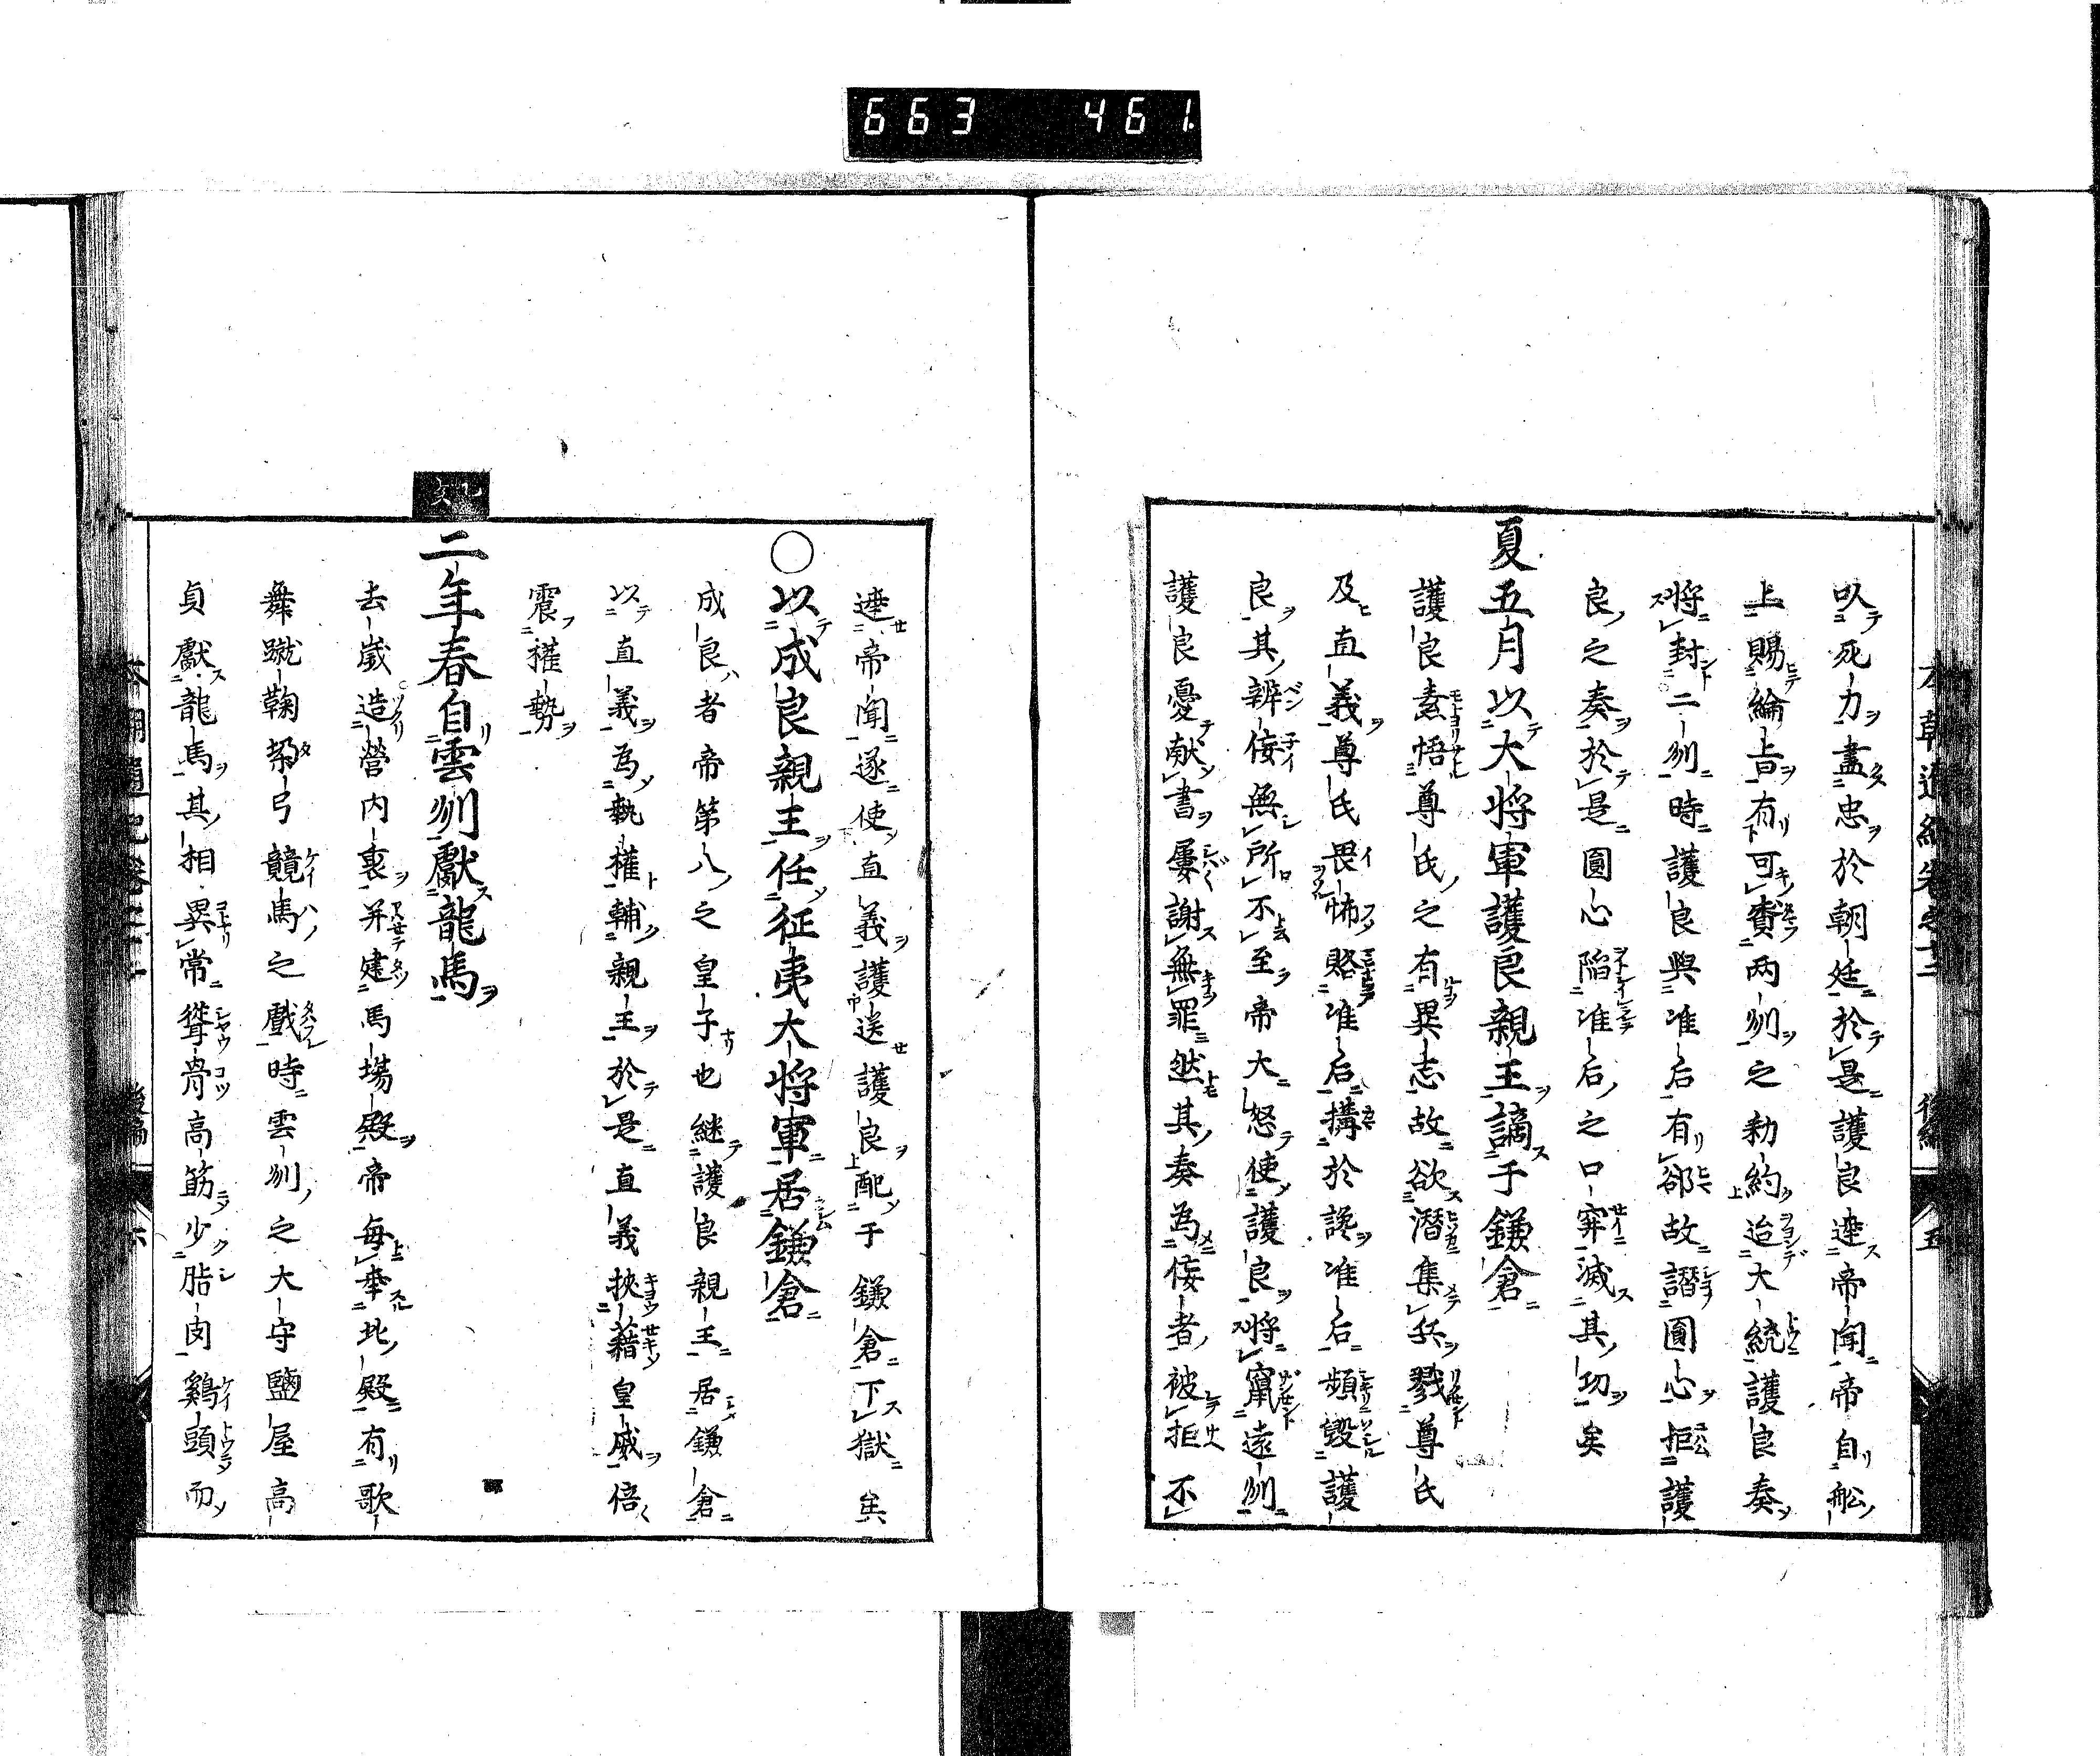 663 461
以死力盡忠於朝廷於是護良達帝聞帝自舩
上賜綸旨有可賚两刕之勅約迨大統護良奏
将封二刕時護良與准后有郤故譖圓心拒護
良之奏於是圓心陥准后之口穽滅其功矣
夏五月以大将軍護良親王謫于鎌倉
護良素悟尊氏之有異志故欲潜集兵戮尊氏
及直義尊氏畏怖賂准后搆於讒准后頻毀護
良其辨侫無所不至帝大怒使護良将竄遠刕
護良憂献書屡謝無罪然其奏為侫者被拒不
達帝聞遂使直義護送護良配于鎌倉下獄矣
○以成良親王任征夷大将軍居鎌倉
成良者帝第八之皇子也継護良親王居鎌倉
以直義為執権輔親王於是直義挾藉皇威倍
震権勢
乙亥
二年春自雲刕獻龍馬
去歳造營内裏并建馬場殿帝毎幸此殿有歌
舞蹴鞠楊弓競馬之戲時雲刕之大守鹽屋高
貞獻龍馬其相異常聳骨高筋少脂肉鷄頭而